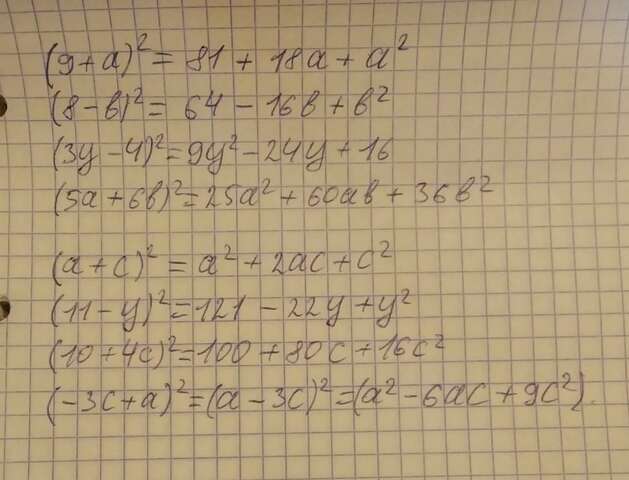 (9+a)² = 81 + 18a + a²
(8-b)² = 64 - 16b + b²
(3y-4)² = 9y² - 24y + 16
(5a+6b)² = 25a² + 60ab + 36b²
(a+c)² = a² + 2ac + c²
(11-y)² = 121 - 22y + y²
(10+4c)² = 100 + 80c + 16c²
(-3c+a)² = (a-3c)² = (a² - 6ac + 9c²).